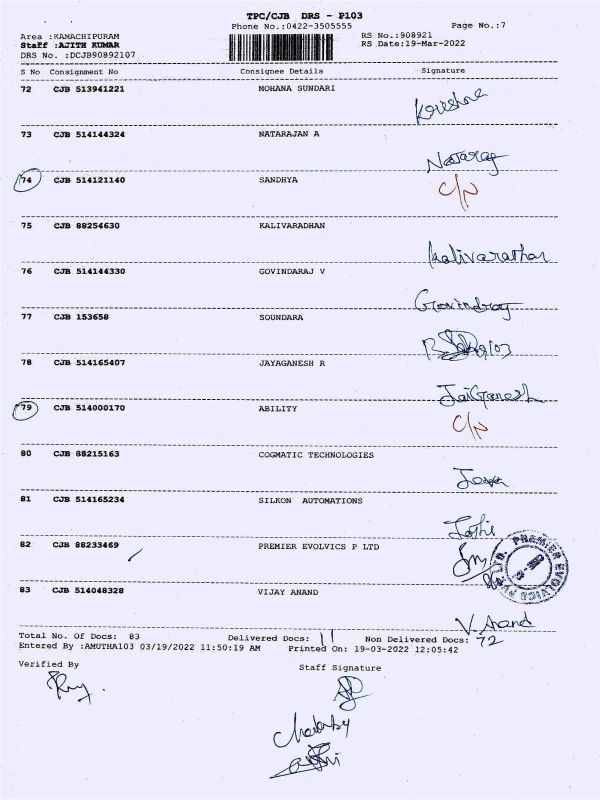 TPC/CJB DRS - P103
Phone No.:0422-3505555
Page No.:7
Area :KAMACHIPURAM
RS No.:908921
Staff :AJITH KUMAR
RS Date:19-Mar-2022
DRS No. :DCJB90892107
S No Consignment No Consignee Details Signature
72 CJB 513941221 MOHANA SUNDARI
Krishna
73 CJB 514144324 NATARAJAN A
Nataraj
74 CJB 514121140 SANDHYA C/N
75 CJB 88254630 KALIVARADHAN
Kalivarathan
76 CJB 514144330 GOVINDARAJ V
Govindraj
77 CJB 153658 SOUNDARA
78 CJB 514165407 JAYAGANESH R
JaiGanesh
79 CJB 514000170 ABILITY C/N
80 CJB 88215163 COGMATIC TECHNOLOGIES
81 CJB 514165234 SILKON AUTOMATIONS
82 CJB 88233469 PREMIER EVOLVICS P LTD
PREMIER EVOLVICS PVT. LTD.
83 CJB 514048328 VIJAY ANAND
V. Anand
Total No. Of Docs: 83 Delivered Docs: 11 Non Delivered Docs: 72
Entered By :AMUTHA103 03/19/2022 11:50:19 AM Printed On: 19-03-2022 12:05:42
Verified By Staff Signature